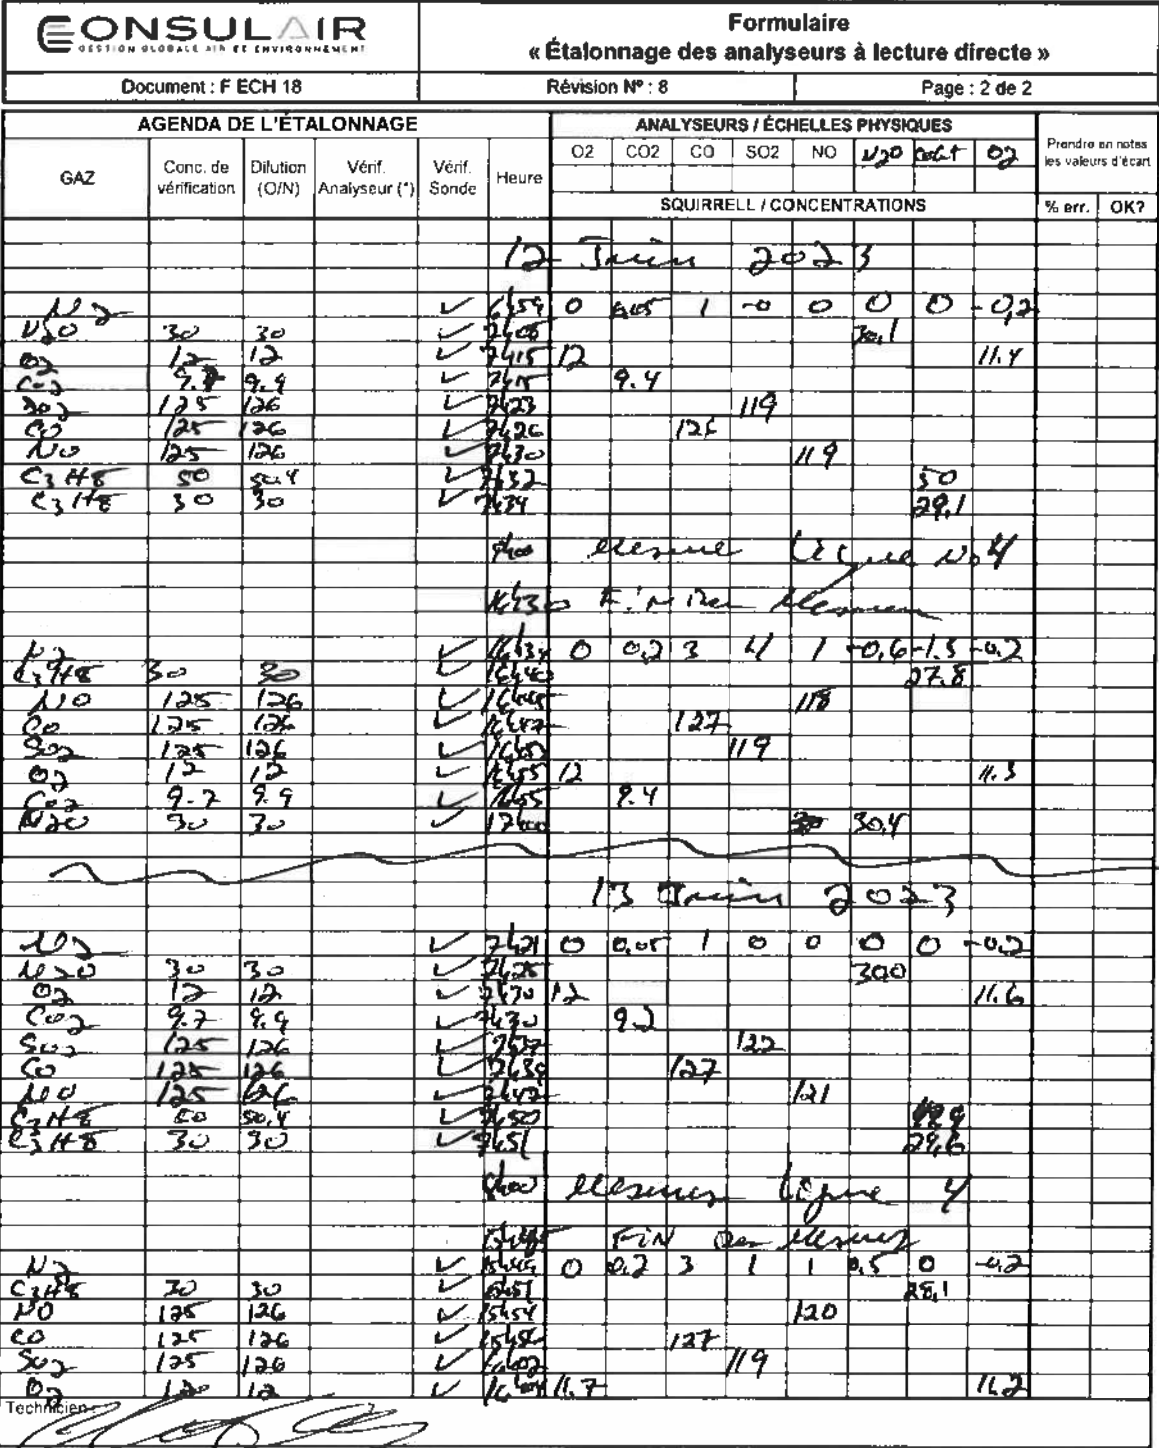 CONSULAIR
GESTION GLOBALE AIR ET ENVIRONNEMENT
Formulaire
« Étalonnage des analyseurs à lecture directe »
Document : F ECH 18 Révision N° : 8 Page : 2 de 2
AGENDA DE L'ÉTALONNAGE ANALYSEURS / ÉCHELLES PHYSIQUES Prendre en notes les valeurs d'écart
GAZ Conc. de vérification Dilution (O/N) Vérif. Analyseur (*) Vérif. Sonde Heure O2 CO2 CO SO2 NO N2O O2
SQUIRRELL / CONCENTRATIONS % err. OK?
12 Juin 2023
N2 ✓ 6h59 0 0,05 1 -0 0 0 0 -0,2
N2O 30 30 ✓ 7h05 30,1
O2 12 12 ✓ 7h15 12 11.4
CO2 9.7 9.9 ✓ 7h15 9.4
SO2 125 126 ✓ 7h23 119
CO 125 126 ✓ 7h26 126
NO 125 126 ✓ 7h30 119
C3H8 50 50.4 ✓ 7h32 50
C3H8 30 30 ✓ 7h34 29,1
8h00 Mesure Ligne No 4
16h30 Fin des Mesures
N2 ✓ 16h34 0 0,2 3 4 1 -0,6 -1.5 -0,2
C3H8 30 30 ✓ 16h40 27.8
NO 125 126 ✓ 16h45 118
CO 125 126 ✓ 16h47 127
SO2 125 126 ✓ 16h50 119
O2 12 12 ✓ 16h55 12 11.3
CO2 9.7 9.9 ✓ 16h55 9.4
N2O 30 30 ✓ 17h00 30,4
13 Juin 2023
N2 ✓ 7h21 0 0,05 1 0 0 0 0 -0,2
N2O 30 30 ✓ 7h25 300
O2 12 12 ✓ 7h30 12 11.6
CO2 9.7 9.9 ✓ 7h30 9.2
SO2 125 126 ✓ 7h37 122
CO 125 126 ✓ 7h39 127
NO 125 126 ✓ 7h42 121
C3H8 50 50,4 ✓ 7h50
C3H8 30 30 ✓ 7h51 29,6
8h00 Mesures ligne 4
15h45 FIN des Mesures
N2 ✓ 15h49 0 0.2 3 1 1 0.5 0 -0,2
C3H8 30 30 ✓ 15h51 28,1
NO 125 126 ✓ 15h54 120
CO 125 126 ✓ 15h56 127
SO2 125 126 ✓ 16h02 119
O2 12 12 ✓ 16h04 11.7 11.2
Technicien :